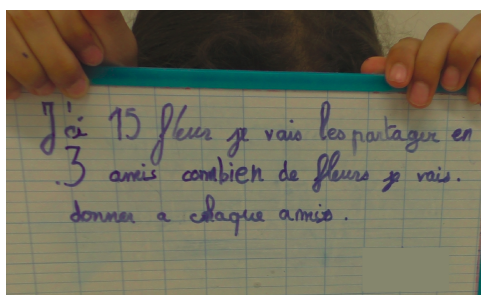 J'ai 15 fleur je vais les partager en
3 amis combien de fleurs je vais.
donner a chaque amis.